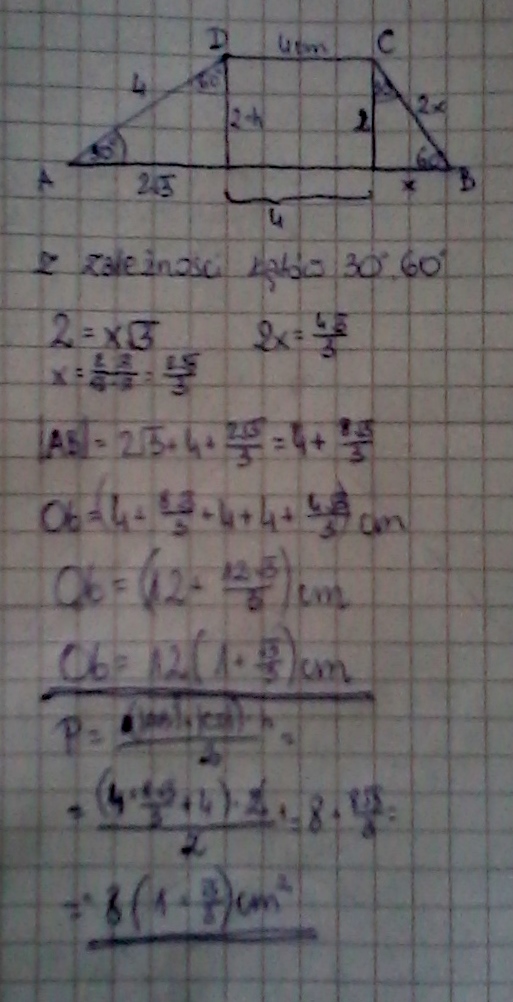 D 4cm C
4 60° 2=h 2 30° 2x
A 30° 60° B
2√3 x
4
Z zależności kątów 30°, 60°
2 = x√3 2x = 4√3/3
x = 2·√3/√3·√3 = 2√3/3
|AB| = 2√3 + 4 + 2√3/3 = 4 + 8√3/3
Ob = (4 + 8√3/3 + 4 + 4 + 4√3/3) cm
Ob = (12 + 12√3/3) cm
Ob = 12(1 + √3/3) cm
P = (|AB|+|CD|)·h/2 =
= (4 + 8√3/3 + 4)·2/2 = 8 + 8√3/3 =
= 8(1 + √3/3) cm²